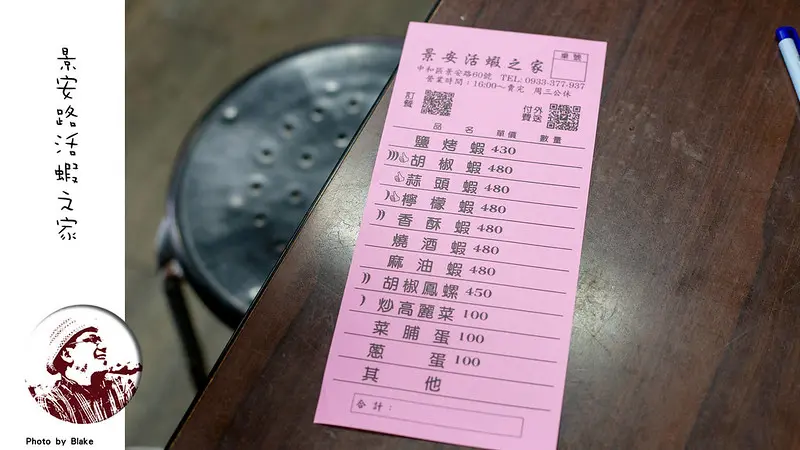 景安路活蝦之家
Photo by Blake
景安活蝦之家
桌號
中和區景安路60號 TEL: 0933-377-937
營業時間：16:00～賣完 周三公休
訂餐
外送付費
品名 單價 數量
鹽烤蝦 430
胡椒蝦 480
蒜頭蝦 480
檸檬蝦 480
香酥蝦 480
燒酒蝦 480
麻油蝦 480
胡椒鳳螺 450
炒高麗菜 100
菜脯蛋 100
蔥蛋 100
其他
合計：